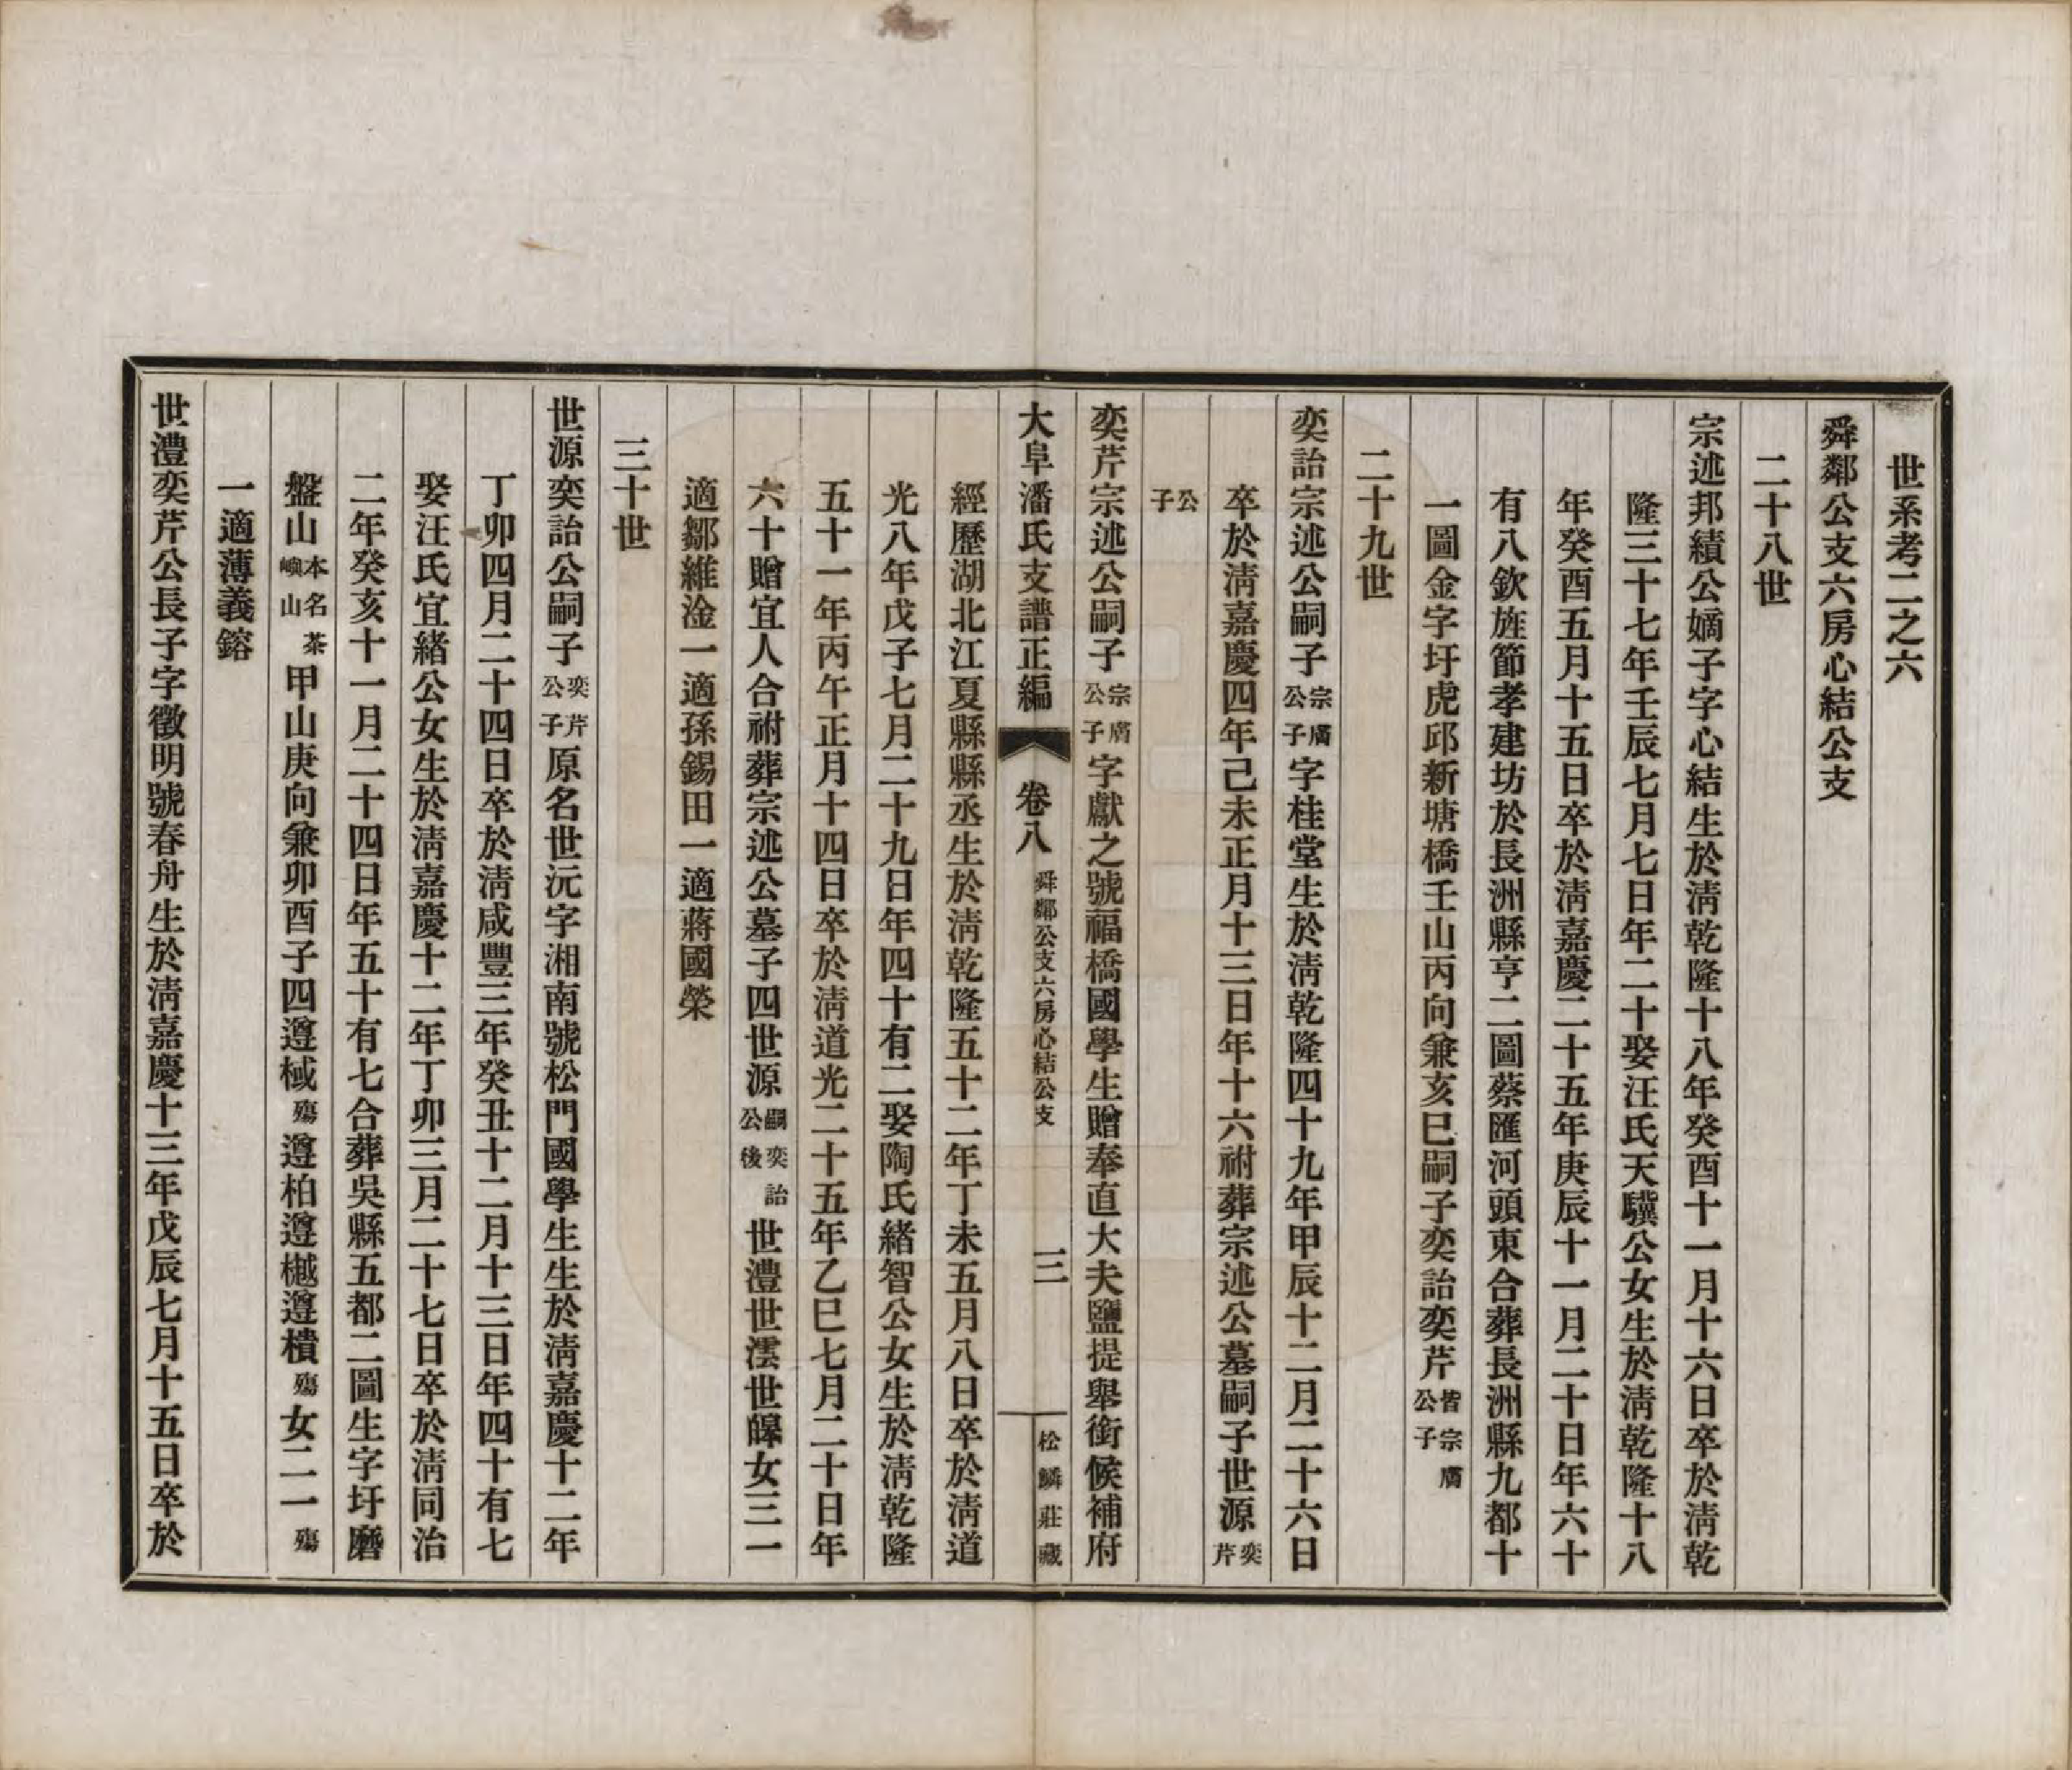 世系考二之六
舜鄰公支六房心結公支
二十八世
宗述邦績公嫡子字心結生於清乾隆十八年癸酉十一月十六日卒於清乾
隆三十七年壬辰七月七日年二十娶汪氏天驥公女生於清乾隆十八
年癸酉五月十五日卒於清嘉慶二十五年庚辰十一月二十日年六十
有八欽旌節孝建坊於長洲縣亨二圖蔡匯河頭東合葬長洲縣九都十
一圖金字圩虎邱新塘橋壬山丙向兼亥巳嗣子奕詒奕芹皆宗膺公子
二十九世
奕詒宗述公嗣子宗膺公子字桂堂生於清乾隆四十九年甲辰十二月二十六日
卒於清嘉慶四年己未正月十三日年十六祔葬宗述公墓嗣子世源奕芹
公子
奕芹宗述公嗣子宗膺公子字獻之號福橋國學生贈奉直大夫鹽提舉銜候補府
大阜潘氏支譜正編 卷八 舜鄰公支六房心結公支 三 松鱗莊藏
經歷湖北江夏縣縣丞生於清乾隆五十二年丁未五月八日卒於清道
光八年戊子七月二十九日年四十有二娶陶氏緒智公女生於清乾隆
五十一年丙午正月十四日卒於清道光二十五年乙巳七月二十日年
六十贈宜人合祔葬宗述公墓子四世源嗣奕詒公後世澧世澐世皞女三一
適鄒維淦一適孫錫田一適蔣國榮
三十世
世源奕詒公嗣子奕芹公子原名世沅字湘南號松門國學生生於清嘉慶十二年
丁卯四月二十四日卒於清咸豐三年癸丑十二月十三日年四十有七
娶汪氏宜緒公女生於清嘉慶十二年丁卯三月二十七日卒於清同治
二年癸亥十一月二十四日年五十有七合葬吳縣五都二圖生字圩磨
盤山本名茶嶼山甲山庚向兼卯酉子四遵棫殤遵柏遵樾遵樻殤女二一殤
一適薄義鎔
世澧奕芹公長子字徵明號春舟生於清嘉慶十三年戊辰七月十五日卒於